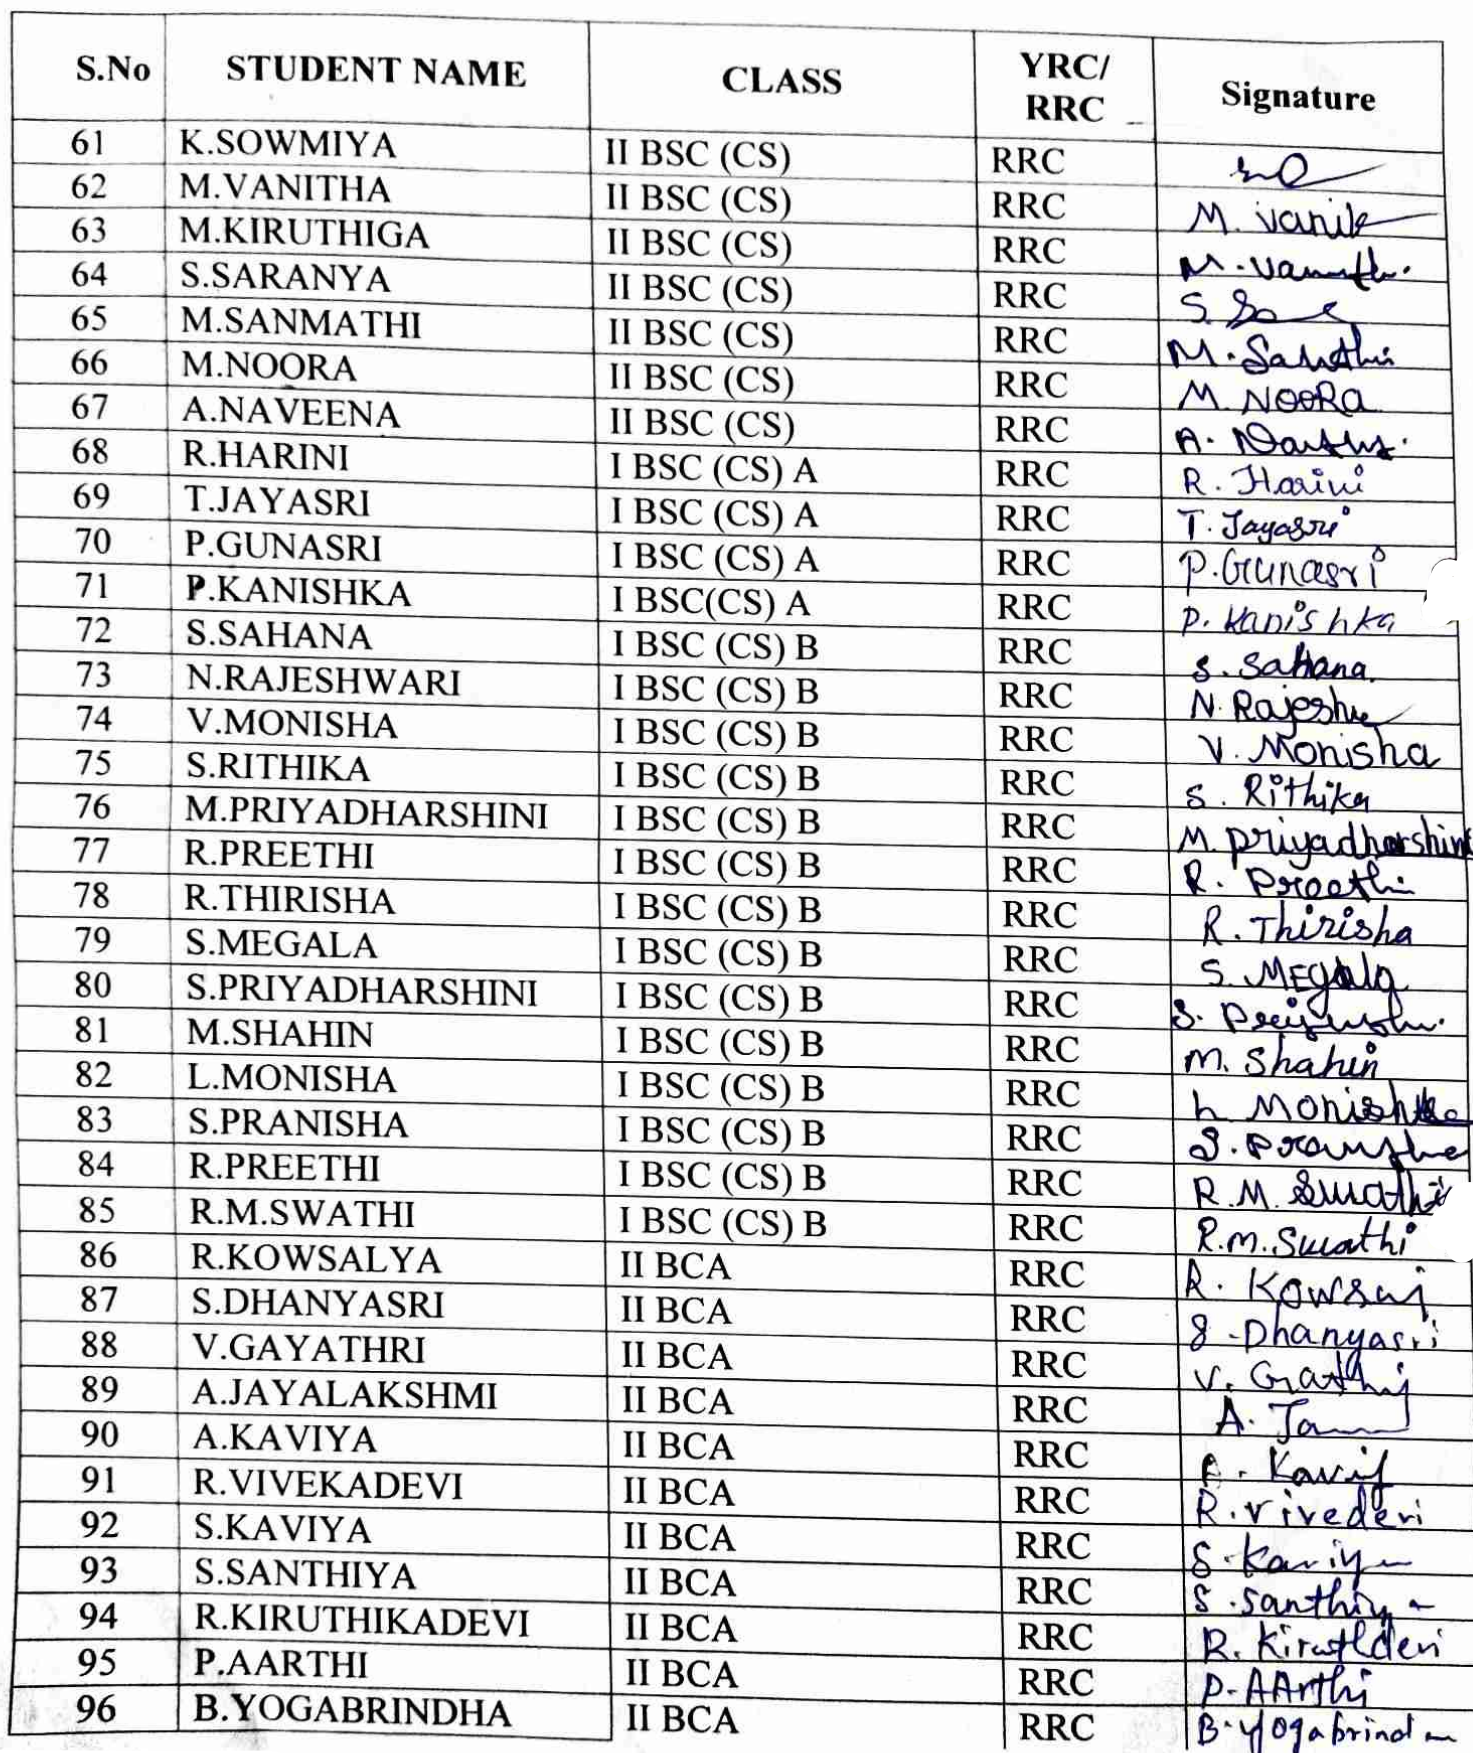 S.No STUDENT NAME CLASS YRC/ RRC Signature
61 K.SOWMIYA II BSC (CS) RRC
62 M.VANITHA II BSC (CS) RRC M.
63 M.KIRUTHIGA II BSC (CS) RRC M.
64 S.SARANYA II BSC (CS) RRC S.
65 M.SANMATHI II BSC (CS) RRC M.
66 M.NOORA II BSC (CS) RRC M. NOORA
67 A.NAVEENA II BSC (CS) RRC A.
68 R.HARINI I BSC (CS) A RRC R. Harini
69 T.JAYASRI I BSC (CS) A RRC T. Jayasri
70 P.GUNASRI I BSC (CS) A RRC P. Gunasri
71 P.KANISHKA I BSC(CS) A RRC P. Kanishka
72 S.SAHANA I BSC (CS) B RRC S. Sahana.
73 N.RAJESHWARI I BSC (CS) B RRC N.
74 V.MONISHA I BSC (CS) B RRC V. Monisha
75 S.RITHIKA I BSC (CS) B RRC S. Rithika
76 M.PRIYADHARSHINI I BSC (CS) B RRC M. Priyadharshini
77 R.PREETHI I BSC (CS) B RRC R. Preethi
78 R.THIRISHA I BSC (CS) B RRC R. Thirisha
79 S.MEGALA I BSC (CS) B RRC S. Megala
80 S.PRIYADHARSHINI I BSC (CS) B RRC S.
81 M.SHAHIN I BSC (CS) B RRC M. Shahin
82 L.MONISHA I BSC (CS) B RRC L Monisha
83 S.PRANISHA I BSC (CS) B RRC S.
84 R.PREETHI I BSC (CS) B RRC R.M. Swathi
85 R.M.SWATHI I BSC (CS) B RRC R.M. Swathi
86 R.KOWSALYA II BCA RRC R.
87 S.DHANYASRI II BCA RRC S. Dhanyasri
88 V.GAYATHRI II BCA RRC V.
89 A.JAYALAKSHMI II BCA RRC A.
90 A.KAVIYA II BCA RRC A.
91 R.VIVEKADEVI II BCA RRC R. Vivedevi
92 S.KAVIYA II BCA RRC S. Kaviya
93 S.SANTHIYA II BCA RRC S. Santhiya
94 R.KIRUTHIKADEVI II BCA RRC R.
95 P.AARTHI II BCA RRC P. AArthi
96 B.YOGABRINDHA II BCA RRC B.